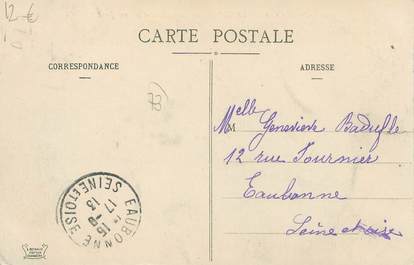 12 €
CARTE POSTALE
CORRESPONDANCE
ADRESSE
73
Melle Geneviève
12 rue Fournier
Eaubonne
Seine et oise
EAUBONNE
SEINE ET OISE
17
13